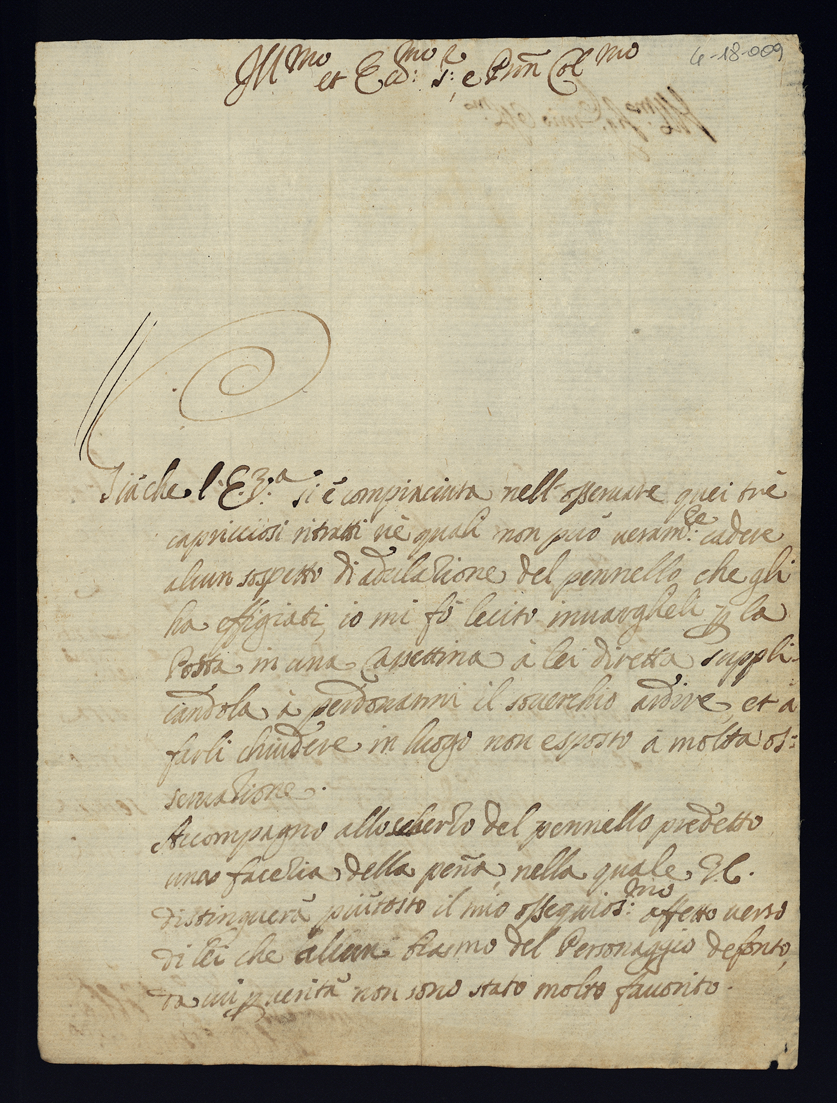 4-18-009
Ill.mo et Ecc.mo s.r e Prõn Col.mo
Giache l'E.za si è compiaciuta nell'osseruare quei trè
capricciosi ritratti nè quali non può veram.te cadere
alcun sospetto di adulatione del pennello che gli
ha effigiati, io mi fò lecito inuiargheli p la
Posta in una Cassettina à lei diretta suppli-
candola à perdonarmi il souerchio ardire, et à
farli chiudere in luogo non esposto à molta os:
seruatione.
Accompagno allo scherzo del pennello predetto
una facetia della peña, nella quale V.E.
distinguerà piùtosto il mio ossequios.mo affetto uerso
di lei che alcun biasmo del Personaggio defonto,
da cui p uerità non sono stato molto fauorito.